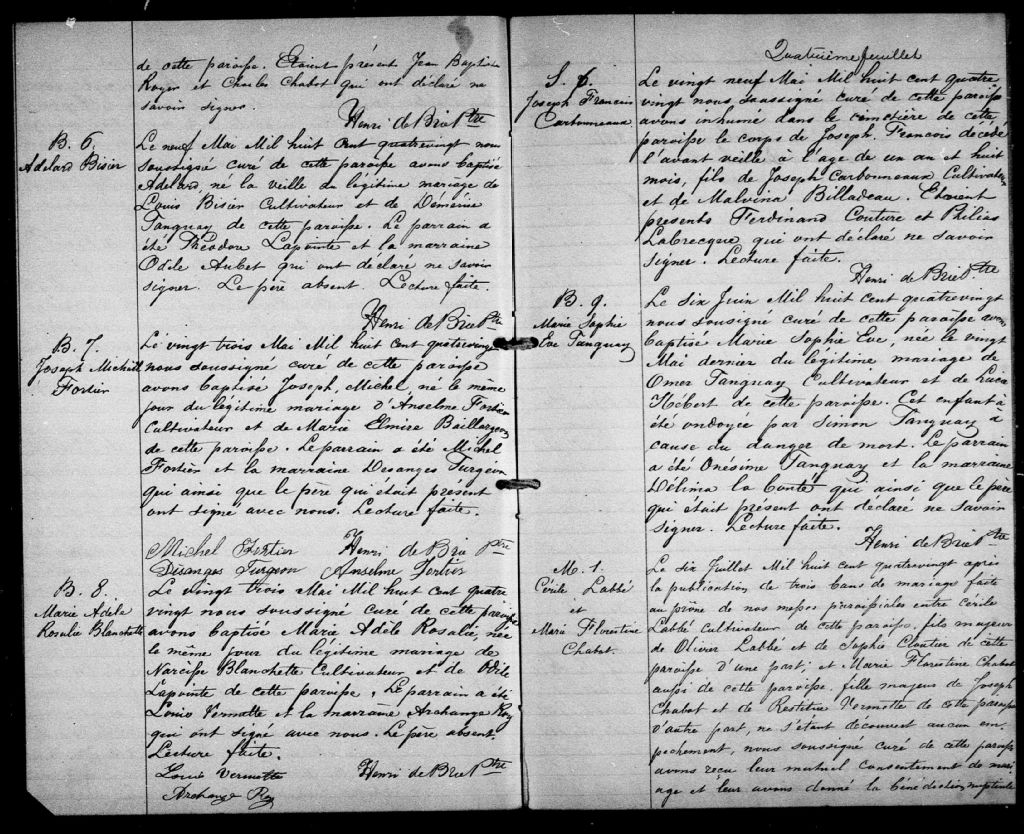 de cette paroisse. Etaient présent Jean Baptiste
Royer et Charles Chabot qui ont déclaré ne
savoir signer.
Henri de Brie Ptre
B. 6.
Adelard Bisier
Le neuf Mai Mil huit Cent quatrevingt nous
soussigné curé de cette paroisse avons baptisé
Adelard, né la veille du légitime mariage de
Louis Bisier Cultivateur et de Deménie
Tanguay de cette paroisse. Le parrain a
été Théodore Lapointe et la marraine
Odile Aubet qui ont déclaré ne savoir
signer. Le père absent. Lecture faite.
Henri de Brie Ptre
B. 7.
Joseph Michel
Fortier
Le vingt trois Mai Mil huit Cent quatrevingt
nous soussigné curé de cette paroisse
avons baptisé Joseph, Michel né le même
jour du légitime mariage d'Anselme Fortier
Cultivateur et de Marie Elmire Baillargeon
de cette paroisse. Le parrain a été Michel
Fortier et la marraine Desanges Turgeon
qui ainsi que le père qui était présent
ont signé avec nous. Lecture faite.
Michel Fortier Henri de Brie Ptre
Désanges Turgeon Anselme Fortier
B. 8.
Marie Adèle
Rosalie Blanchette
Le vingt trois Mai Mil huit Cent quatre
vingt nous soussigné curé de cette paroisse
avons baptisé Marie Adèle Rosalie, née
le même jour du légitime mariage de
Narcisse Blanchette Cultivateur et de Odile
Lapointe de cette paroisse. Le parrain a été
Louis Vermette et la marraine Archange Roy
qui ont signé avec nous. Le père absent.
Lecture faite.
Louis Vermette Henri de Brie Ptre
Archange Roy
Quatrième feuillet
S. 6.
Joseph Francois
Carbonneaux
Le vingt neuf Mai Mil huit Cent quatre
vingt nous soussigné curé de cette paroisse
avons inhumé dans le cimetière de cette
paroisse le corps de Joseph, Francois décédé
l'avant veille à l'age de un an et huit
mois, fils de Joseph Carbonneaux Cultivateur
et de Malvina Billadeau. Etaient
presents Ferdinand Couture et Philéas
Labrecque qui ont déclaré ne savoir
signer. Lecture faite.
Henri de Brie Ptre
B. 9.
Marie Sophie
Eve Tanguay
Le six Juin Mil huit Cent quatrevingt
nous soussigné curé de cette paroisse avons
baptisé Marie Sophie Eve, née le vingt
Mai dernier du légitime mariage de
Omer Tanguay Cultivateur et de Luca
Hébert de cette paroisse. Cet enfant à
été ondoyée par Simon Tanguay à
cause du danger de mort. Le parrain
a été Onésime Tanguay et la marraine
Délima la Conte qui ainsi que le père
qui était présent ont déclaré ne savoir
signer. Lecture faite.
Henri de Brie Ptre
M. 1.
Cérile Labbé
et
Marie Florentine
Chabot.
Le six Juillet Mil huit Cent quatrevingt après
la publication de trois bans de mariage faite
au prône de nos messes paroissiales entre Cérile
Labbé Cultivateur de cette paroisse, fils majeur
de Olivier Labbé et de Sophie Cloutier de cette
paroisse d'une part; et Marie Florentine Chabot
aussi de cette paroisse, fille majeur de Joseph
Chabot et de Restitue Vermette de cette paroisse
d'autre part, ne s'étant découvert aucun em
pechement, nous soussigné curé de cette paroisse
avons recu leur mutuel consentement de mari
age et leur avons donné la bénédiction nuptiale